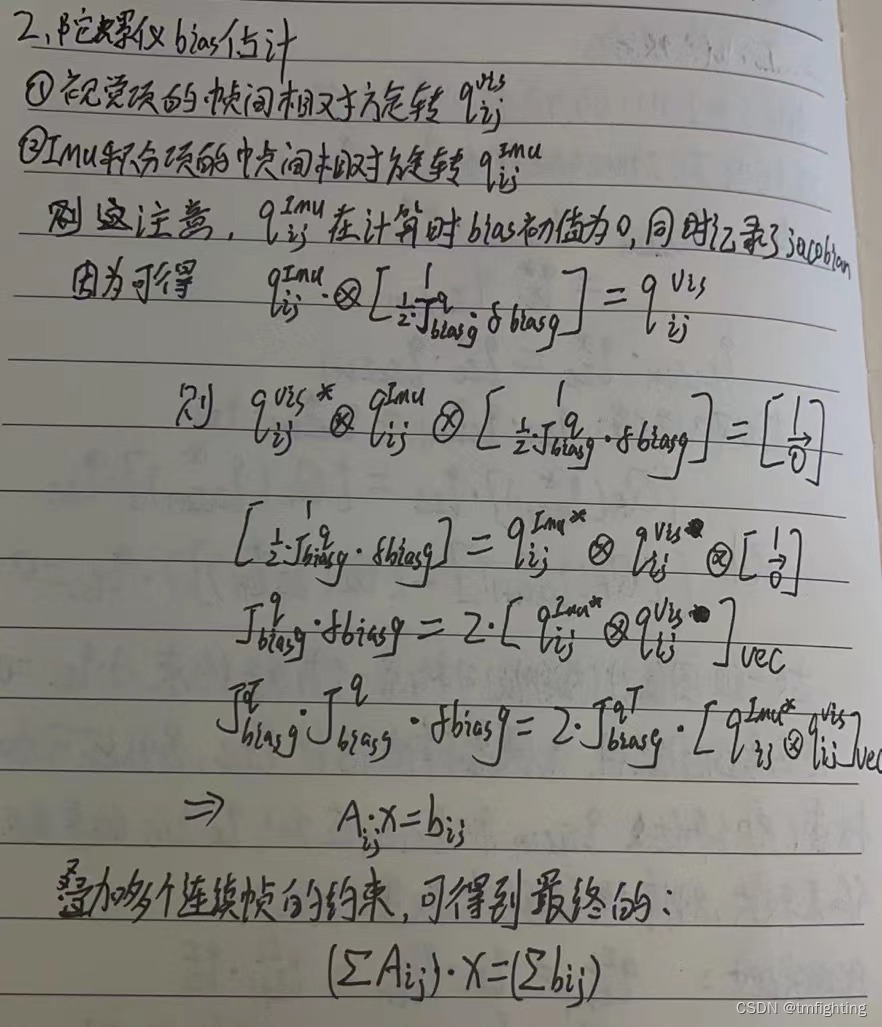 2,陀螺仪bias估计
①视觉项的帧间相对旋转 q_{ij}^{vis}
②Imu积分项的帧间相对旋转 q_{ij}^{Imu}
这注意, q_{ij}^{Imu} 在计算时bias初值为0,同时记录了jacobian
因为可得 q_{ij}^{Imu} ⊗ [1; ½·J_{biasg}^{q}·δbiasg] = q_{ij}^{vis}
则 q_{ij}^{vis*} ⊗ q_{ij}^{Imu} ⊗ [1; ½·J_{biasg}^{q}·δbiasg] = [1; \vec{0}]
[1; ½·J_{biasg}^{q}·δbiasg] = q_{ij}^{Imu*} ⊗ q_{ij}^{vis} ⊗ [1; \vec{0}]
J_{biasg}^{q}·δbiasg = 2·[q_{ij}^{Imu*} ⊗ q_{ij}^{vis}]_{vec}
J_{biasg}^{qT}·J_{biasg}^{q}·δbiasg = 2·J_{biasg}^{qT}·[q_{ij}^{Imu*} ⊗ q_{ij}^{vis}]_{vec}
⇒ A_{ij}·x = b_{ij}
叠加多个连续帧的约束,可得到最终的:
(ΣA_{ij})·x=(Σb_{ij})
CSDN @tmfighting